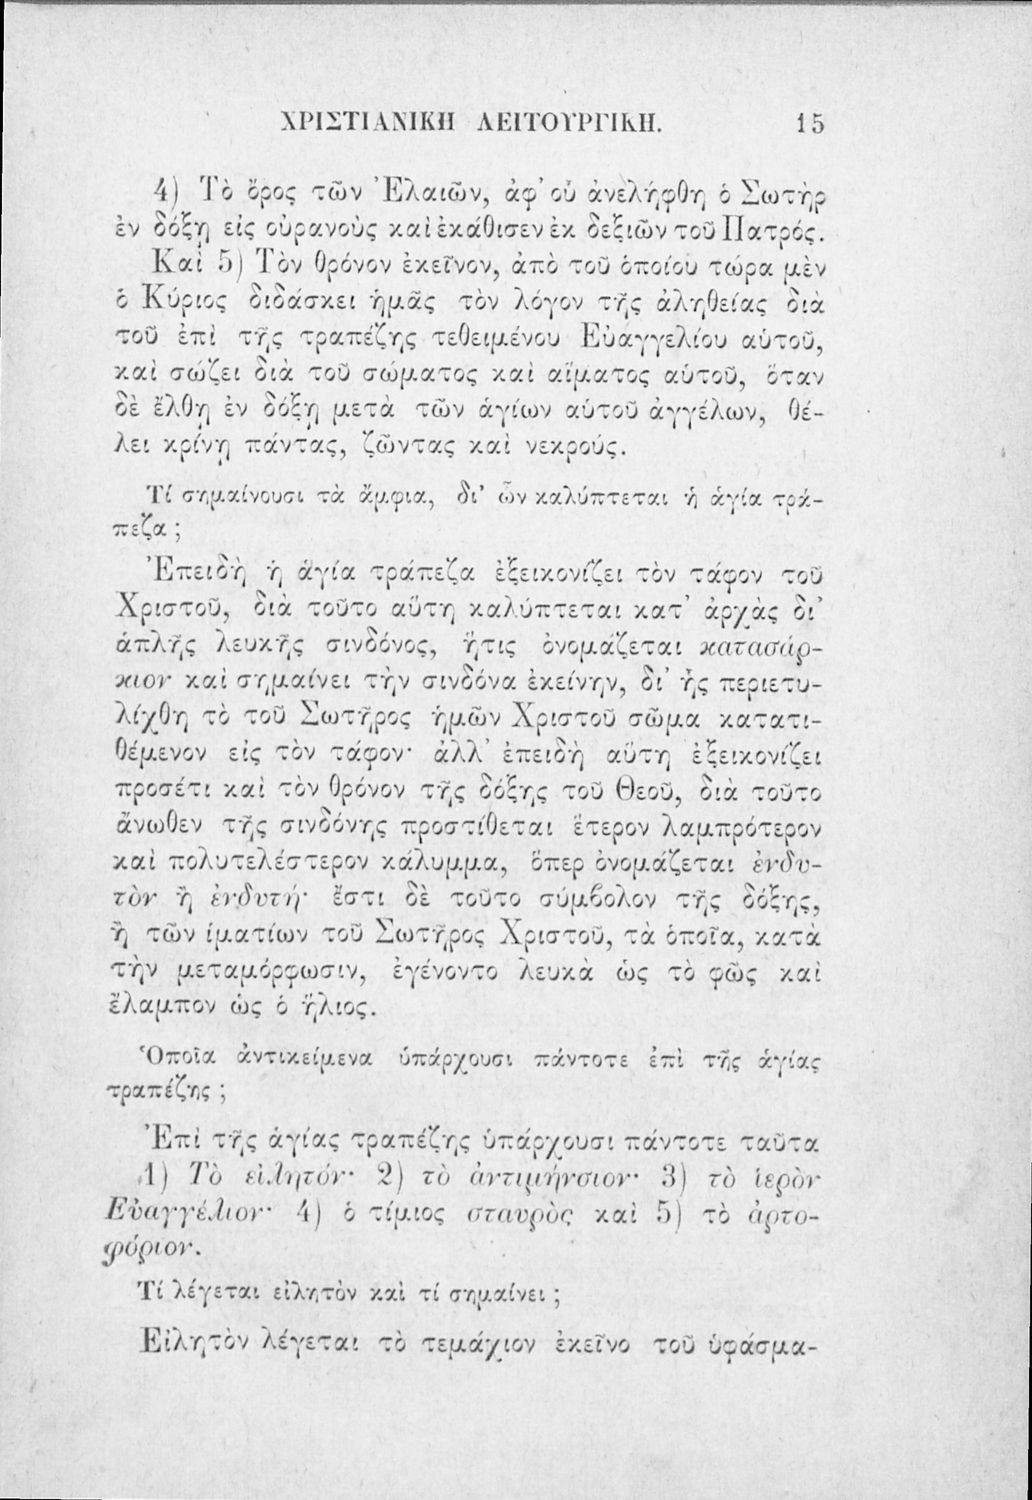 ΧΡΙΣΤΙΑΝΙΚΗ ΛΕΙΤΟΥΡΓΙΚΗ. 15
4) Τὸ ὄρος τῶν Ἐλαιῶν, ἀφ' οὗ ἀνελήφθη ὁ Σωτὴρ
ἐν δόξῃ εἰς οὐρανοὺς καὶ ἐκάθισεν ἐκ δεξιῶν τοῦ Πατρός.
Καὶ 5) Τὸν θρόνον ἐκεῖνον, ἀπὸ τοῦ ὁποίου τώρα μὲν
ὁ Κύριος διδάσκει ἡμᾶς τὸν λόγον τῆς ἀληθείας διὰ
τοῦ ἐπὶ τῆς τραπέζης τεθειμένου Εὐαγγελίου αὐτοῦ,
καὶ σώζει διὰ τοῦ σώματος καὶ αἵματος αὐτοῦ, ὅταν
δὲ ἔλθῃ ἐν δόξῃ μετὰ τῶν ἁγίων αὐτοῦ ἀγγέλων, θέ-
λει κρίνῃ πάντας, ζῶντας καὶ νεκρούς.
Τί σημαίνουσι τὰ ἄμφια, δι' ὧν καλύπτεται ἡ ἁγία τρά-
πεζα ;
Ἐπειδὴ ἡ ἁγία τράπεζα ἐξεικονίζει τὸν τάφον τοῦ
Χριστοῦ, διὰ τοῦτο αὕτη καλύπτεται κατ' ἀρχὰς δι'
ἁπλῆς λευκῆς σινδόνος, ἥτις ὀνομάζεται κατασάρ-
κιον καὶ σημαίνει τὴν σινδόνα ἐκείνην, δι' ἧς περιετυ-
λίχθη τὸ τοῦ Σωτῆρος ἡμῶν Χριστοῦ σῶμα κατατι-
θέμενον εἰς τὸν τάφον· ἀλλ' ἐπειδὴ αὕτη ἐξεικονίζει
προσέτι καὶ τὸν θρόνον τῆς δόξης τοῦ Θεοῦ, διὰ τοῦτο
ἄνωθεν τῆς σινδόνης προστίθεται ἕτερον λαμπρότερον
καὶ πολυτελέστερον κάλυμμα, ὅπερ ὀνομάζεται ἐνδυ-
τὸν ἢ ἐνδυτή· ἔστι δὲ τοῦτο σύμβολον τῆς δόξης,
ἢ τῶν ἱματίων τοῦ Σωτῆρος Χριστοῦ, τὰ ὁποῖα, κατὰ
τὴν μεταμόρφωσιν, ἐγένοντο λευκὰ ὡς τὸ φῶς καὶ
ἔλαμπον ὡς ὁ ἥλιος.
Ὁποῖα ἀντικείμενα ὑπάρχουσι πάντοτε ἐπὶ τῆς ἁγίας
τραπέζης ;
Ἐπὶ τῆς ἁγίας τραπέζης ὑπάρχουσι πάντοτε ταῦτα
1) Τὸ εἰλητόν· 2) τὸ ἀντιμήνσιον· 3) τὸ ἱερὸν
Εὐαγγέλιον· 4) ὁ τίμιος σταυρὸς καὶ 5) τὸ ἀρτο-
φόριον.
Τί λέγεται εἰλητὸν καὶ τί σημαίνει ;
Εἰλητὸν λέγεται τὸ τεμάχιον ἐκεῖνο τοῦ ὑφάσμα-